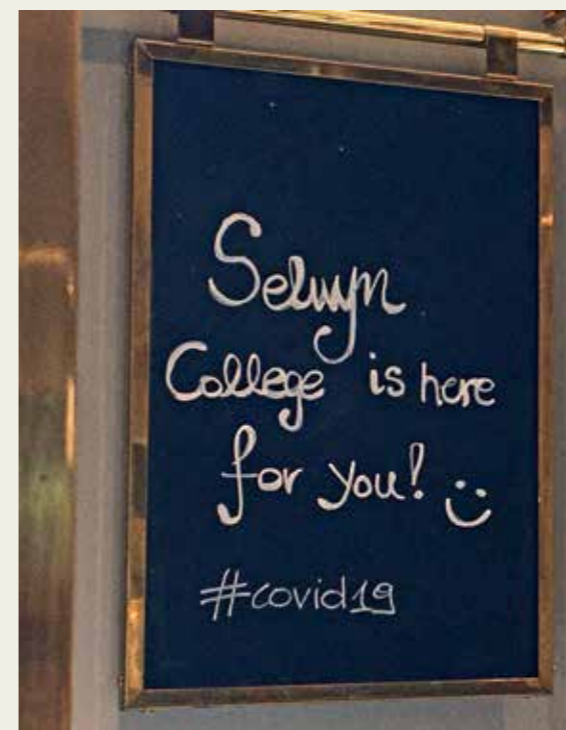 Selwyn
College is here
for you! :)
#covid19